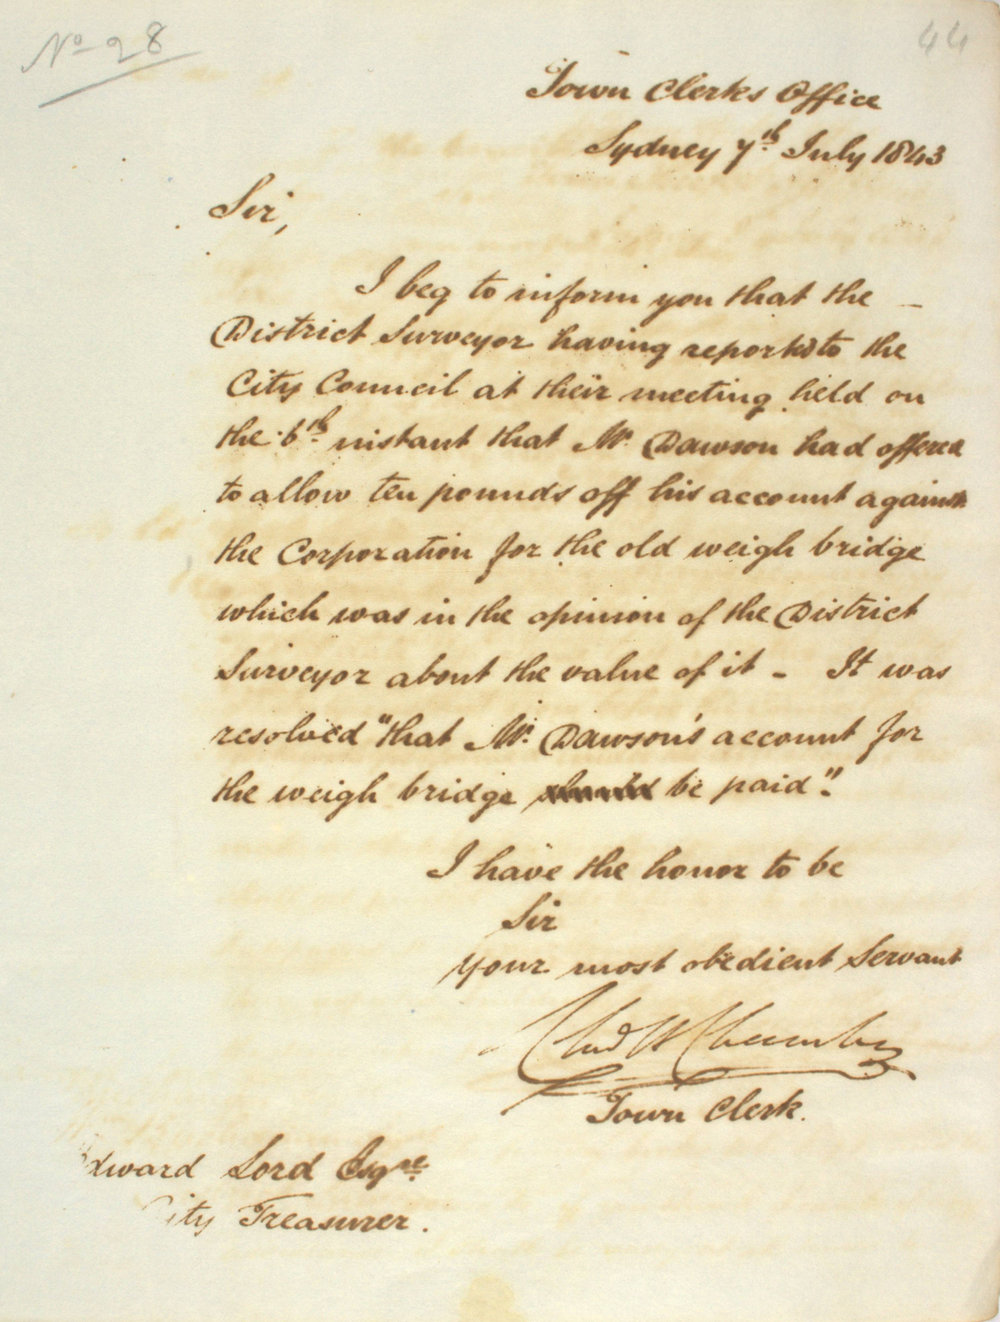 No 28
44
Town Clerks Office
Sydney 7th July 1843
Sir,
I beg to inform you that the
District Surveyor having reported to the
City Council at their meeting held on
the 6th instant that Mr. Dawson had offered
to allow ten pounds off his account against
the Corporation for the old weigh bridge
which was in the opinion of the District
Surveyor about the value of it - It was
resolved "that Mr. Dawson's account for
the weigh bridge be paid".
I have the honor to be
Sir
Your most obedient Servant
Chas H Chambers
Town Clerk.
Edward Lord Esqre.
City Treasurer.